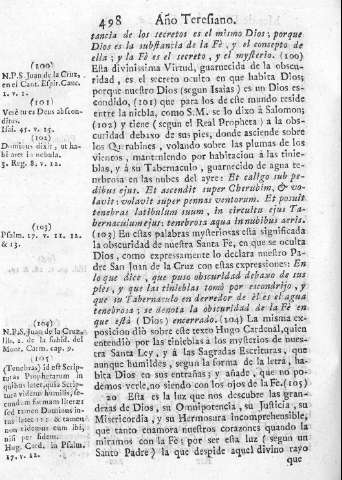 498 Año Teresiano.
tancia de los secretos es el mismo Dios; porque
Dios es la substancia de la Fè, y el concepto de
ella; y la Fè es el secreto, y el mysterio. (100)
Esta divinissima Virtud, guarnecida de la obscu-
ridad, es el secreto oculto en que habita Dios;
porque nuestro Dios (segun Isaias) es un Dios es-
condido, (101) que para los de este mundo reside
entre la niebla, como S.M. se lo dixo à Salomon;
(102) y tiene (segun el Real Propheta) a la obs-
curidad debaxo de sus pies, donde asciende sobre
los Querubines, volando sobre las plumas de los
vientos, manteniendo por habitacion à las tinie-
blas, y à su Tabernaculo, guarnecido de agua te-
nebrosa en las nubes del ayre: Et caligo sub pe-
dibus ejus. Et ascendit super Cherubim, & vo-
lavit: volavit super pennas ventorum. Et posuit
tenebras latibulum suum, in circuitu ejus Ta-
bernaculum ejus: tenebrosa aqua in nubibus aeris.
(103) En estas palabras mysteriosas està significada
la obscuridad de nuestra Santa Fè, en que se oculta
Dios, como expressamente lo declara nuestro Pa-
dre San Juan de la Cruz con estas expressiones: En
lo que dice, que puso obscuridad debaxo de sus
pies, y que las tinieblas tomò por escondrijo, y
que su Tabernaculo en derredor de èl es el agua
tenebrosa; se denota la obscuridad de la Fè en
que està (Dios) encerrado. (104) La misma ex-
posicion diò sobre este texto Hugo Cardenal, quien
entendiò por las tinieblas à los mysterios de nues-
tra Santa Ley, y à las Sagradas Escrituras, que
aunque humildes, segun la forma de la letra, habita
Dios en sus entrañas, y añade, que no po-
demos verle, no siendo con los ojos de la Fè. (105)
20 Esta es la luz que nos descubre las gran-
dezas de Dios, su Omnipotencia, su Justicia, su
Misericordia, y su Hermosura incomprehensible,
que tanto enamora nuestros corazones quando la
miramos con la Fè; por ser esta luz (segun un
Santo Padre) la que despide aquel divino rayo
que
(100)
N.P.S. Juan de la Cruz,
en el Cant. Espir. Canc.
1. v. 1.
(101)
Verè tu es Deus abscon-
ditus.
Isai. 45. v. 15.
(102)
Dominus dixit, ut ha-
bitaret in nebula.
3. Reg. 8. v. 12.
(103)
Psalm. 17. v. 11. 12.
& 13.
(104)
N.P.S. Juan de la Cruz,
lib. 2. de la subid. del
Mont. Carm. cap. 9.
(105)
(Tenebras) id est Scrip-
turas Prophetarum in
quibus latet, quia Scrip-
tura videtur humilis, se-
cundum formam literæ;
sed tamen Dominus in-
tus latet 12. &c. & tamen
non videmus eum ibi,
nisi per fidem.
Hug. Card. in Psalm.
17. v. 12.